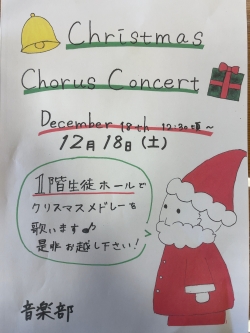 Christmas
Chorus Concert
December 18th 12:30頃~
12月18日(土)
1階生徒ホールで
クリスマスメドレーを
歌います♪
是非お越し下さい!
音楽部